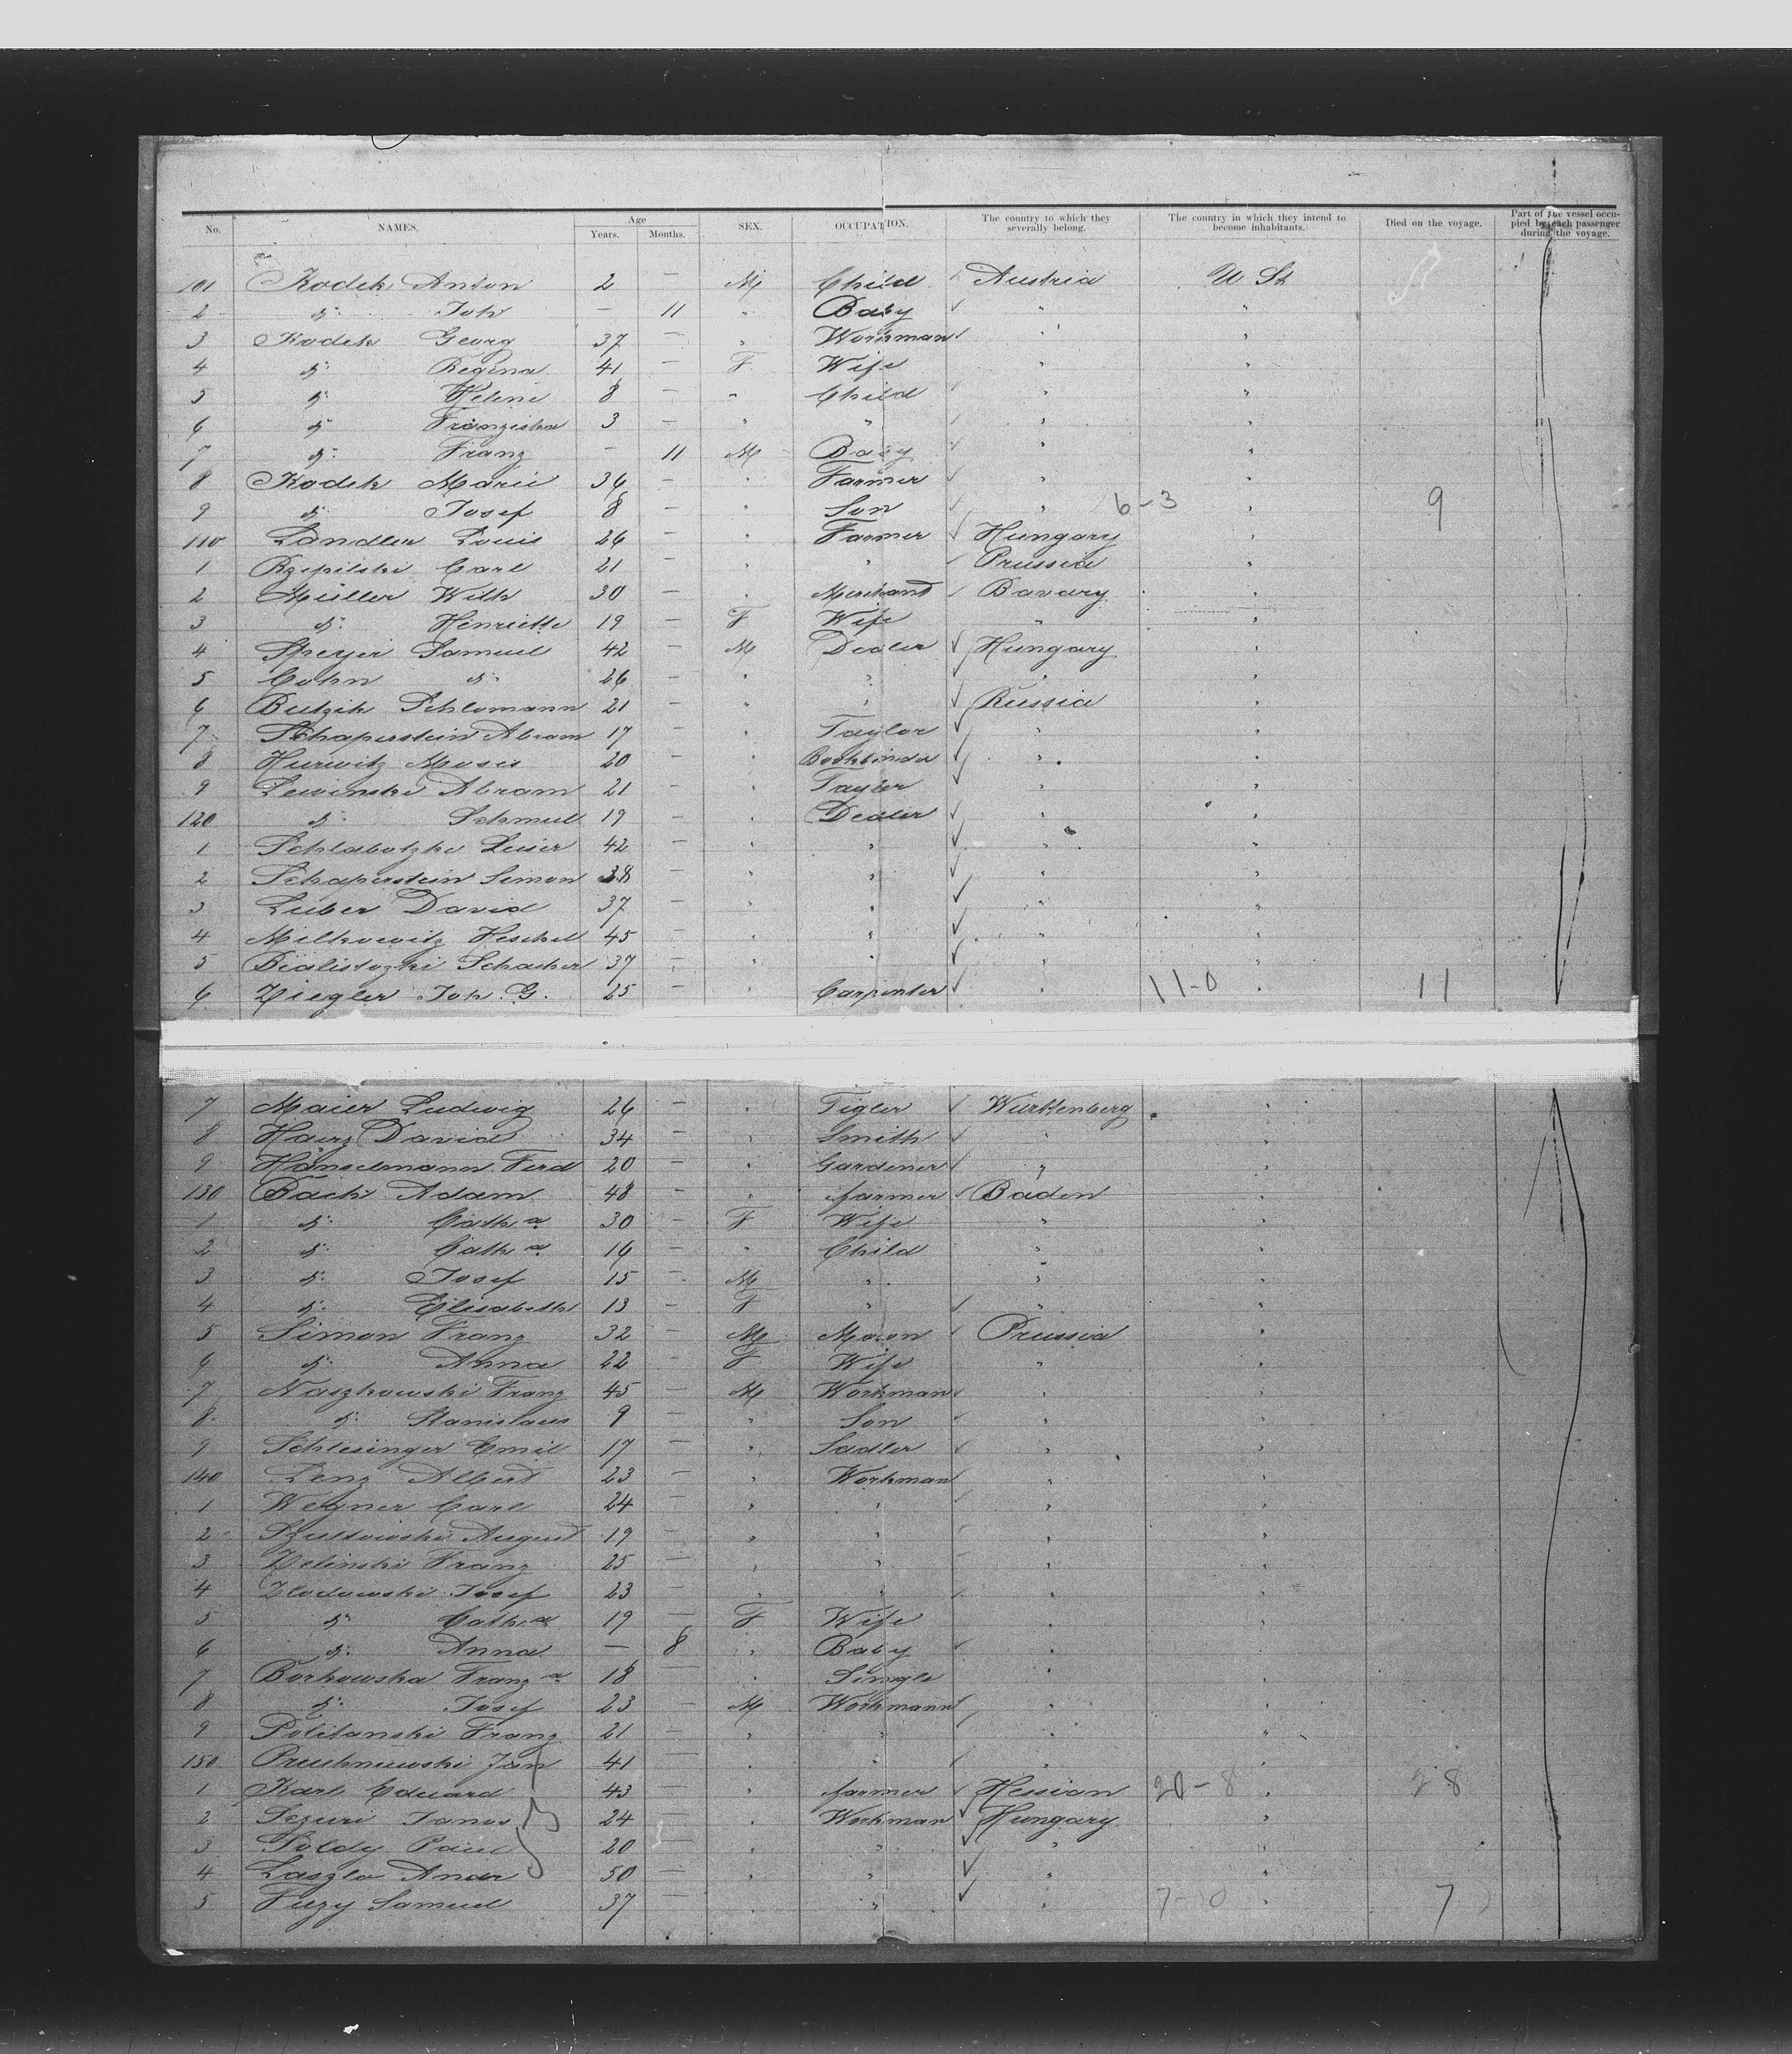 No. NAMES. Age Years. Months. SEX. OCCUPATION. The country to which they severally belong. The country in which they intend to become inhabitants. Died on the voyage. Part of the vessel occupied by each passenger during the voyage.
101 Kodek Anton 2 — M Child Austria U St
2 do Joh — 11 " Baby " "
3 Kodek Georg 37 — " Workman " "
4 do Regina 41 — F Wife " "
5 do Helene 8 — " Child " "
6 do Franziska 3 — " " " "
7 do Franz — 11 M Baby " "
8 Kodek Marie 36 — " Farmer " "
9 do Josef 8 — " Son " 6-3 " 9
110 Landler Louis 26 — " Farmer Hungary "
1 Rzepilski Carl 21 — " " Prussia "
2 Müller Wilh 30 — " Merchant Bavary "
3 do Henriette 19 — F Wife " "
4 Speyer Samuel 42 — M Dealer Hungary "
5 Cohn do 26 — " " " "
6 Butzik Schlomann 21 — " " Russia "
7 Schaperstein Abram 17 — " Taylor " "
8 Hurwitz Moses 20 — " Bookbinder " "
9 Lewinski Abram 21 — " Tayler " "
120 do Schmul 19 — " Dealer " "
1 Schlabotzke Leiser 42 — " " " "
2 Schaperstein Simon 38 — " " " "
3 Luber David 37 — " " " "
4 Milkowitz Heschel 45 — " " " "
5 Bialistozki Schacher 37 — " " " "
6 Ziegler Joh. G. 25 — " Carpenter " 11-0 " 11
7 Maier Ludwig 26 — " Tigler Wurttenberg "
8 Hairz David 34 — " Smith " "
9 Hänselmann Ferd 20 — " Gardener " "
130 Bäck Adam 48 — " farmer Baden "
1 do Cath a 30 — F Wife " "
2 do Cath a 16 — " Child " "
3 do Josef 15 — M " " "
4 do Elisabeth 13 — F " " "
5 Simon Franz 32 — M Mason Prussia "
6 do Anna 22 — F Wife " "
7 Naszkowski Franz 45 — M Workman " "
8 do Stanislaus 9 — " Son " "
9 Schlesinger Emil 17 — " Sadler " "
140 Lenz Albert 23 — " Workman " "
1 Wegner Carl 24 — " " " "
2 Szultowski August 19 — " " " "
3 Zelinski Franz 25 — " " " "
4 Zlodowski Josef 23 — " " " "
5 do Cath a 19 — F Wife " "
6 do Anna — 8 " Baby " "
7 Borkowska Franz a 18 — " Single " "
8 do Josef 23 — M Workmann " "
9 Politanski Franz 21 — " " " "
150 Pruchniewski Jan 41 — " " " "
1 Karl Eduard 43 — " farmer Hessian 20-8 " 28
2 Sezuri Janos 24 — " Workman Hungary "
3 Poldy Paul 20 — " " " "
4 Laszlo Andr 50 — " " " "
5 Fuzy Samuel 37 — " " " 7-10 " 7